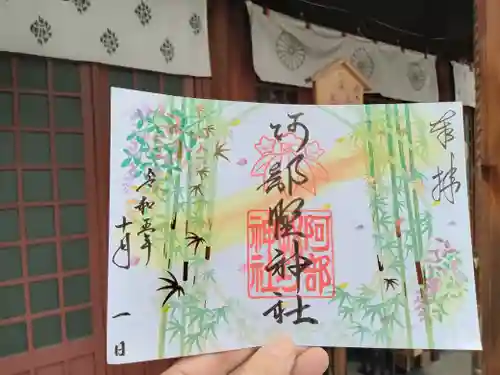 奉拝
阿部野神社
阿部野神社
令和五年
十月一日